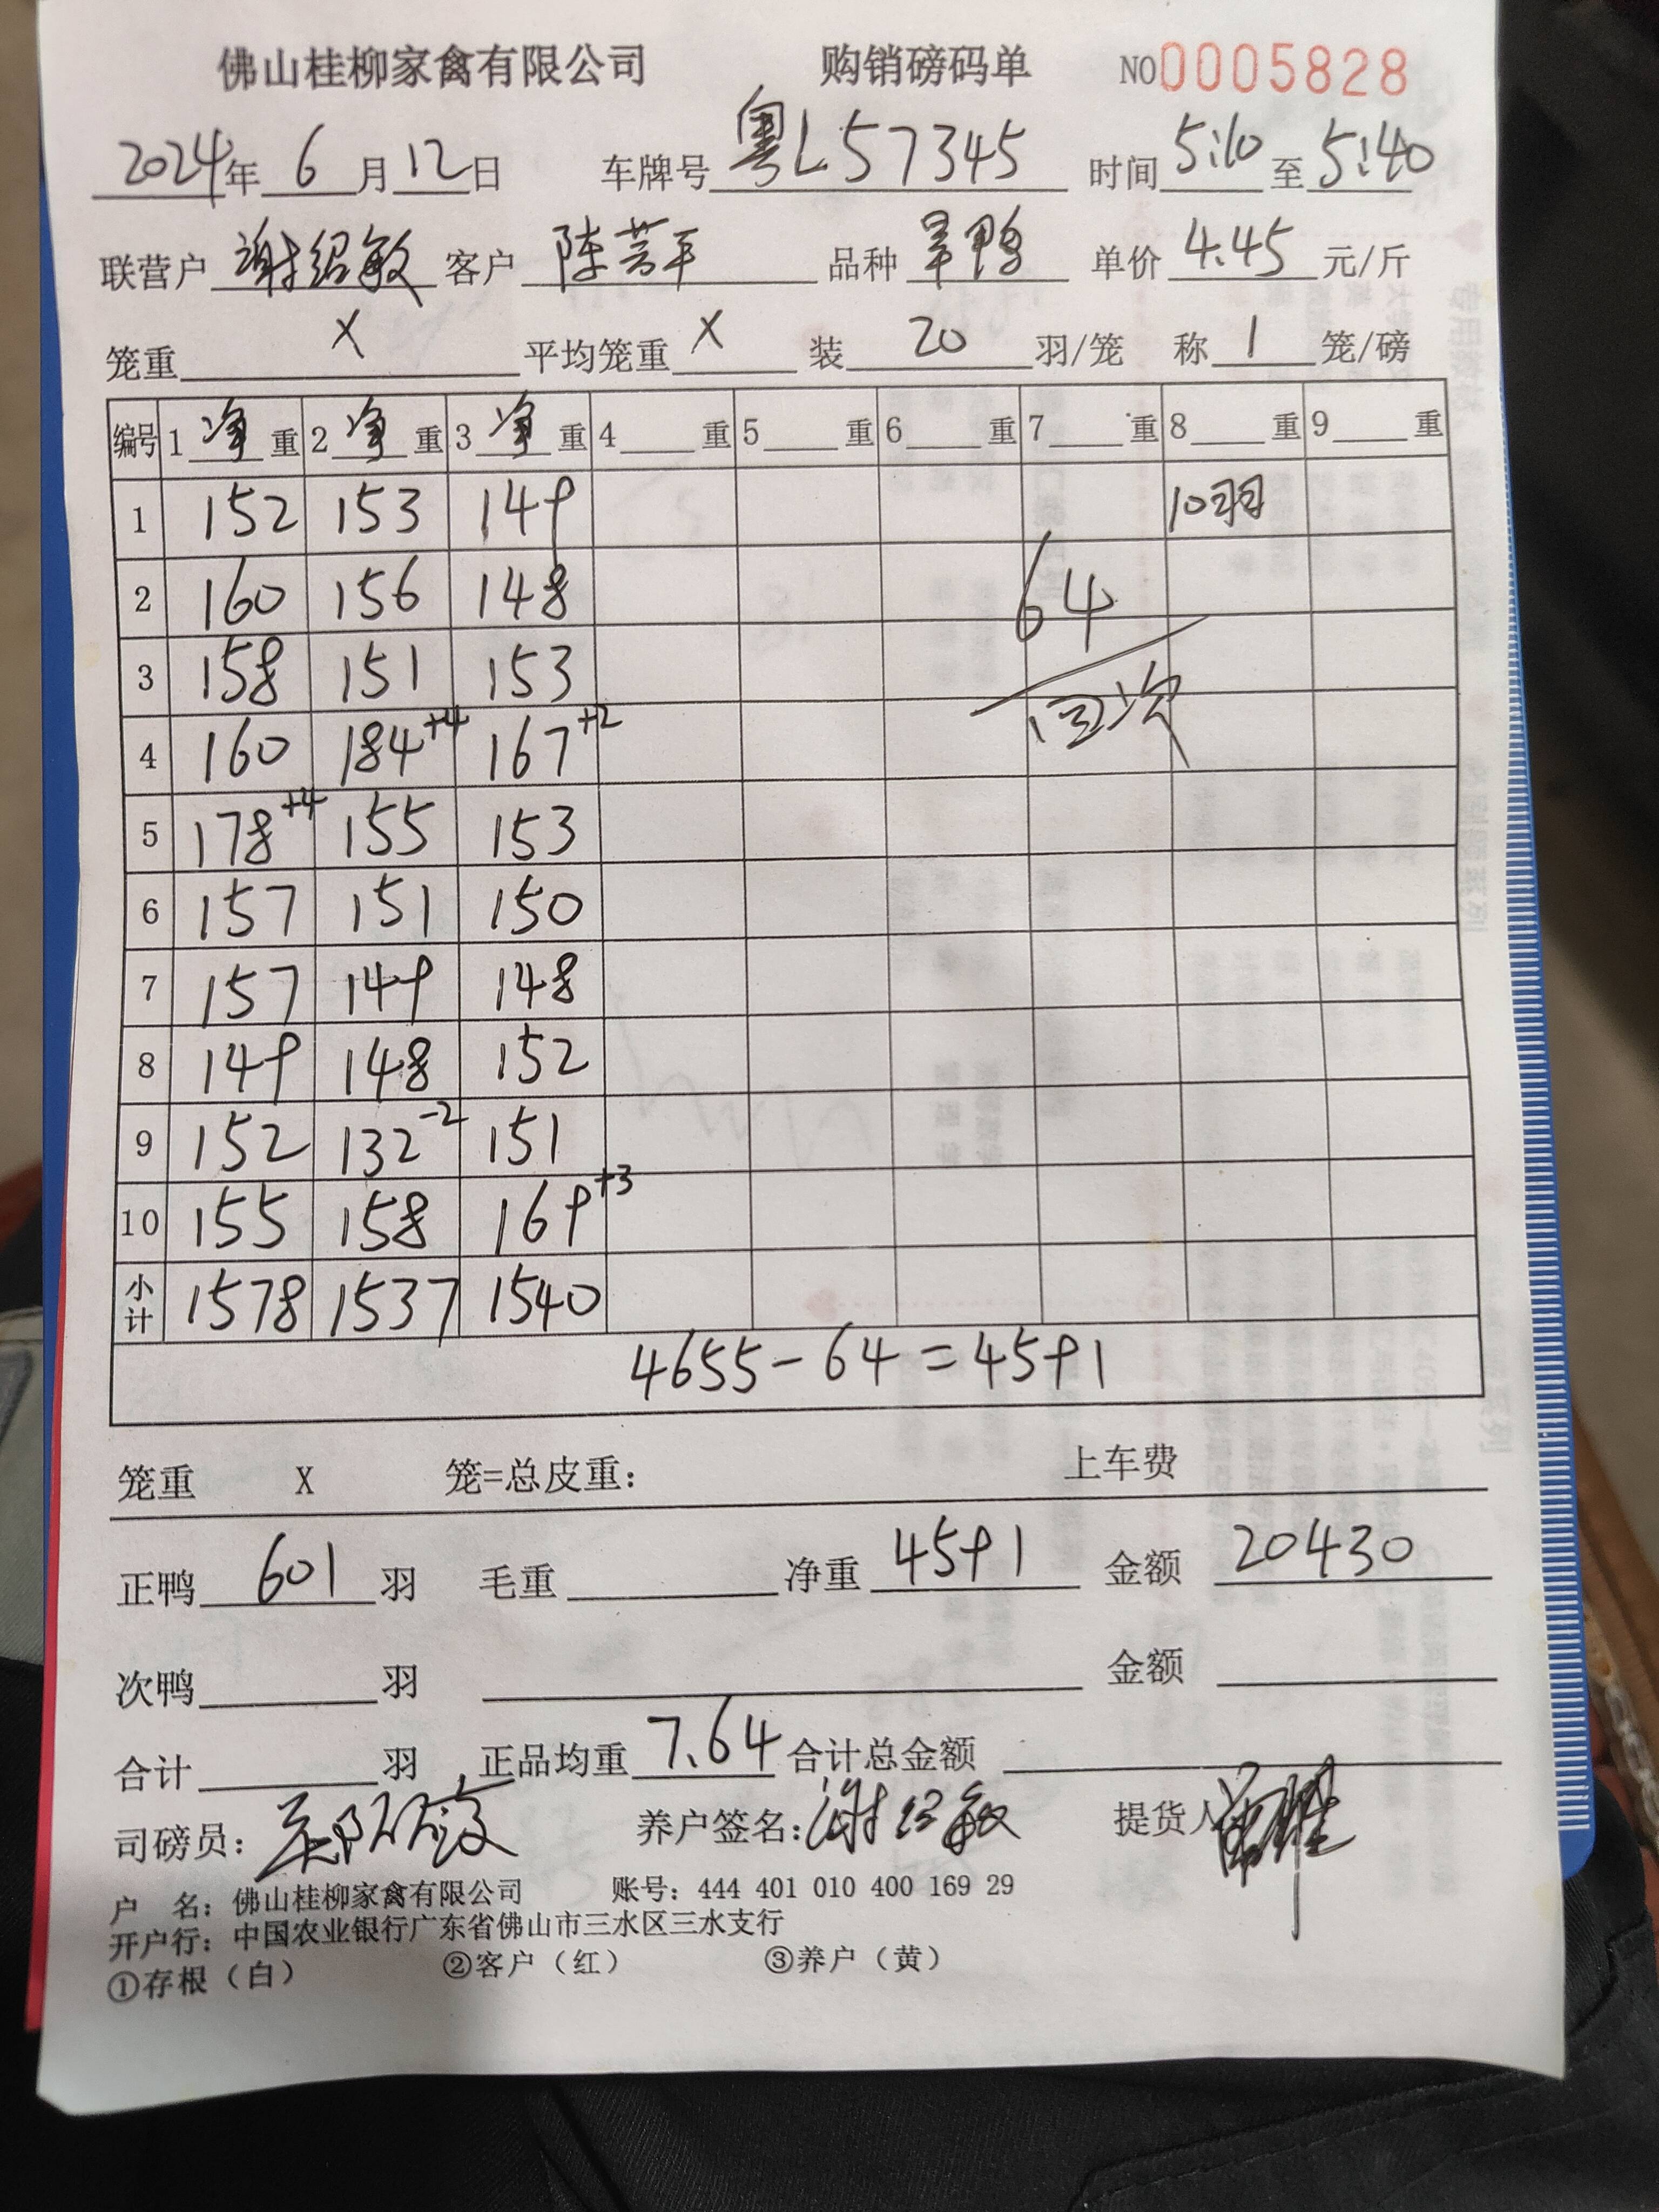 佛山桂柳家禽有限公司 购销磅码单 NO0005828
2024年 6 月 12 日 车牌号 粤L57345 时间 5:10 至 5:40
联营户 谢绍敏 客户 陈芳平 品种 旱鸭 单价 4.45 元/斤
笼重 X 平均笼重 X 装 20 羽/笼 称 1 笼/磅
编号 1 净 重 2 净 重 3 净 重 4 重 5 重 6 重 7 重 8 重 9 重
1 152 153 149 10羽
2 160 156 148 64
3 158 151 153
4 160 184+4 167+2 回次
5 178+4 155 153
6 157 151 150
7 157 149 148
8 149 148 152
9 152 132-2 151
10 155 158 169+3
小计 1578 1537 1540
4655-64=4591
笼重 X 笼=总皮重: 上车费
正鸭 601 羽 毛重 净重 4591 金额 20430
次鸭 羽 金额
合计 羽 正品均重 7.64 合计总金额
司磅员: 养户签名: 谢绍敏 提货人
户 名: 佛山桂柳家禽有限公司 账号: 444 401 010 400 169 29
开户行: 中国农业银行广东省佛山市三水区三水支行
①存根(白) ②客户(红) ③养户(黄)